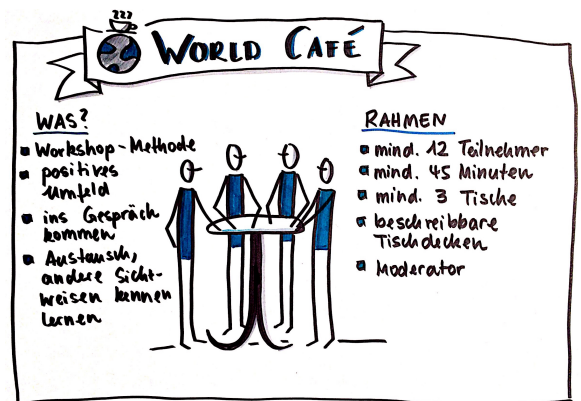 WORLD CAFÉ
WAS?
Workshop-Methode
positives
Umfeld
ins Gespräch
kommen
Austausch,
andere Sicht-
weisen kennen
lernen
RAHMEN
mind. 12 Teilnehmer
mind. 45 Minuten
mind. 3 Tische
beschreibbare
Tischdecken
Moderator